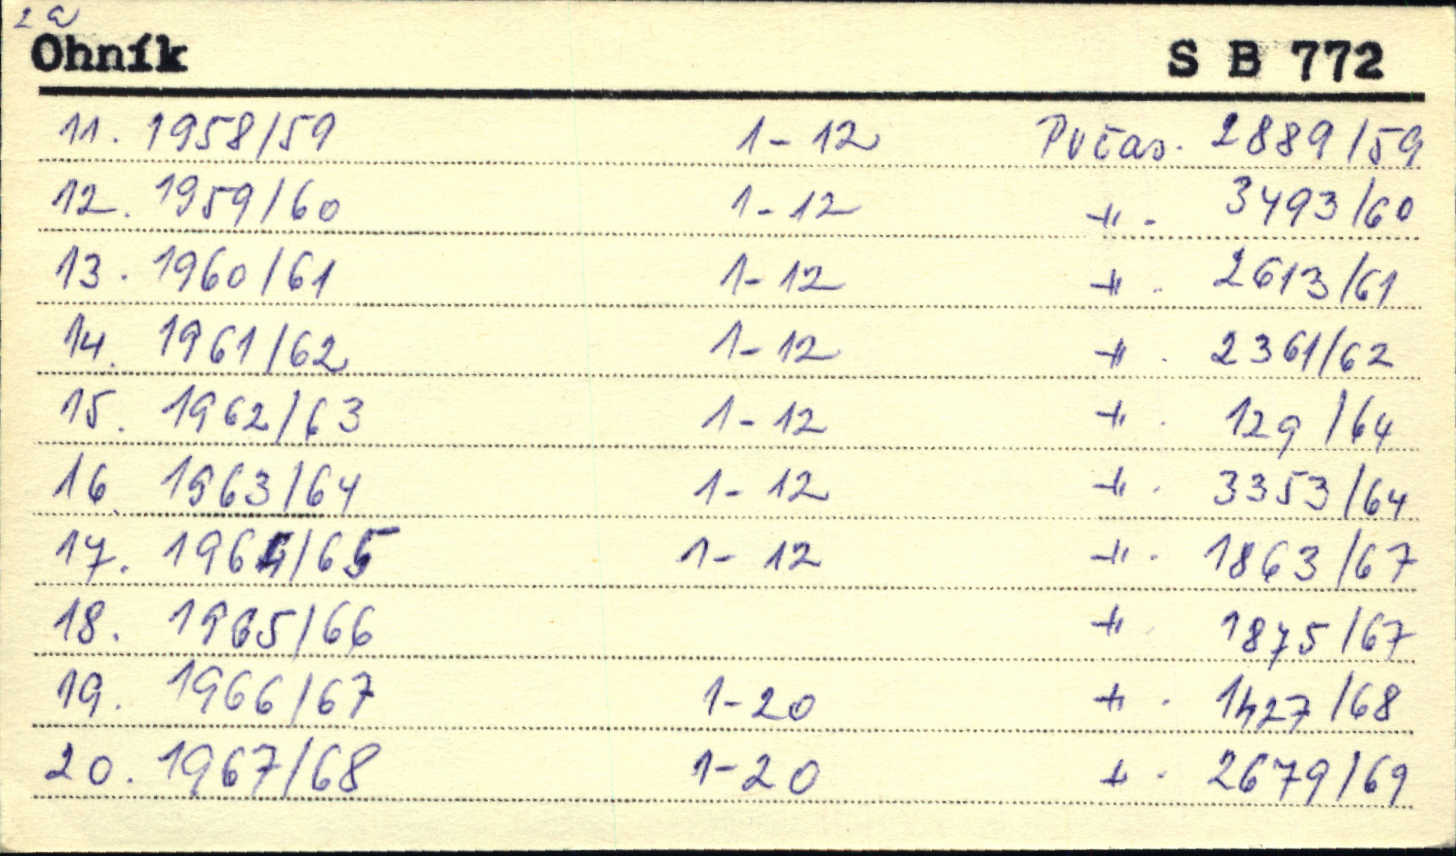 2a
Ohník S B 772
11. 1958/59 1-12 Pvčas. 2889/59
12. 1959/60 1-12 -"- 3493/60
13. 1960/61 1-12 -"- 2613/61
14. 1961/62 1-12 -"- 2361/62
15. 1962/63 1-12 -"- 129/64
16 1963/64 1-12 -"- 3353/64
17. 1964/65 1-12 -"- 1863/67
18. 1965/66 -"- 1875/67
19. 1966/67 1-20 -"- 1427/68
20. 1967/68 1-20 -"- 2679/69